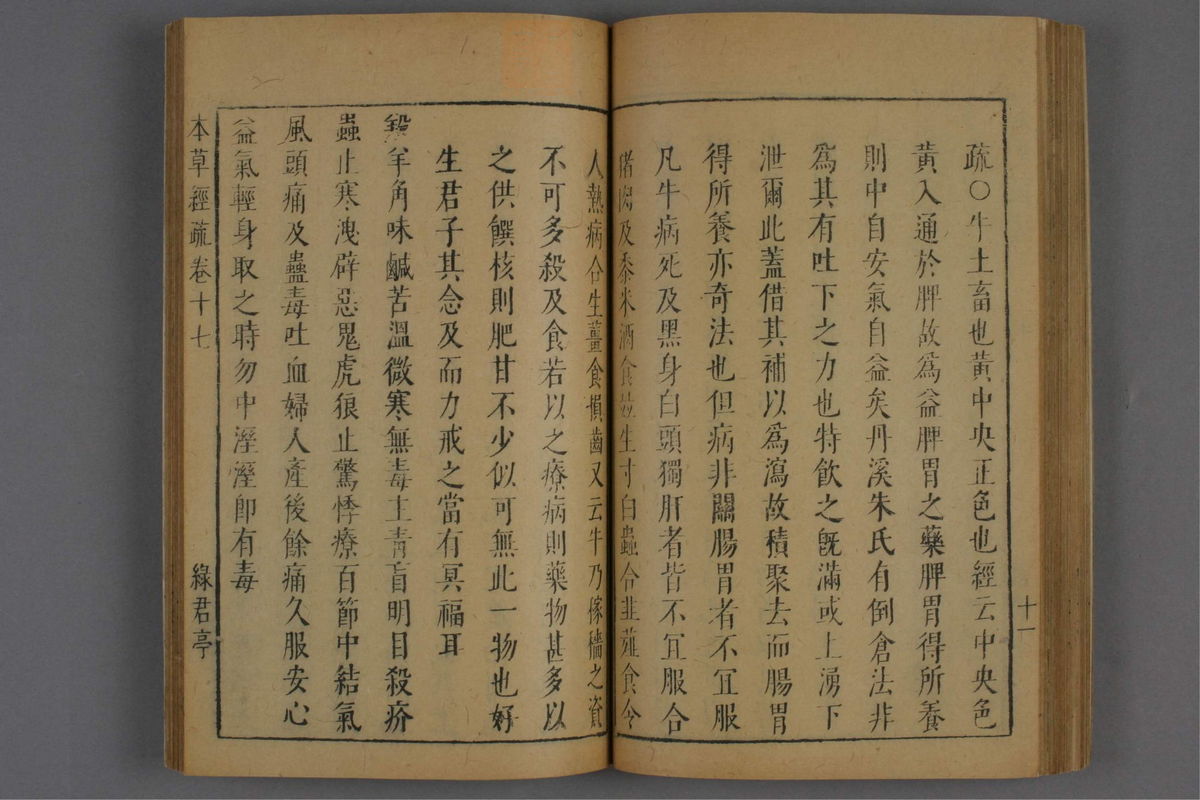 疏〇牛土畜也黃中央正色也經云中央色
黃入通於脾故爲益脾胃之藥脾胃得所養
則中自安氣自益矣丹溪朱氏有倒倉法非
爲其有吐下之力也特飲之旣滿或上湧下
泄爾此蓋借其補以爲瀉故積聚去而腸胃
得所養亦奇法也但病非關腸胃者不宜服
凡牛病死及黑身白頭獨肝者皆不宜服合
猪肉及黍米酒食並生寸白蟲合韭薤食令
人熱病合生薑食損齒又云牛乃稼穡之資
不可多殺及食若以之療病則藥物甚多以
之供饌核則肥甘不少似可無此一物也好
生君子其念及而力戒之當有冥福耳
羖羊角味鹹苦溫微寒無毒主青盲明目殺疥
蟲止寒洩辟惡鬼虎狼止驚悸療百節中結氣
風頭痛及蠱毒吐血婦人產後餘痛久服安心
益氣輕身取之時勿中溼溼卽有毒
本草經疏 卷十七 綠君亭
十一